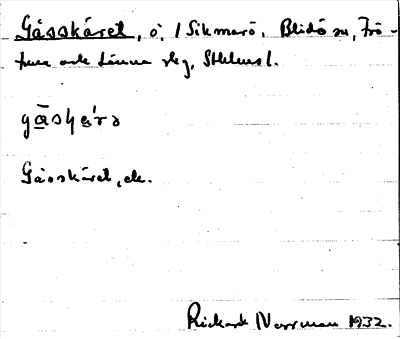 Gåsskäret, ö, i Sikmarö, Blidö sn, Frö-
tuna och Länna skg, Sthlms l.
gåsʃę̀rə
Gåsskäret, ek.
Rickard Norrman 1932.